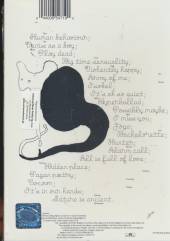 Human behaviour;
Venus as a boy;
Play dead;
Big time sensuality;
Violently happy;
Army of me;
Isobel;
It's oh so quiet;
Hyperballad;
Possibly maybe;
I miss you;
Joga;
Bachelorette;
Hunter;
Alarm call;
All is full of love;
Hidden place;
Pagan poetry;
Cocoon;
It's in our hands;
Nature is ancient.